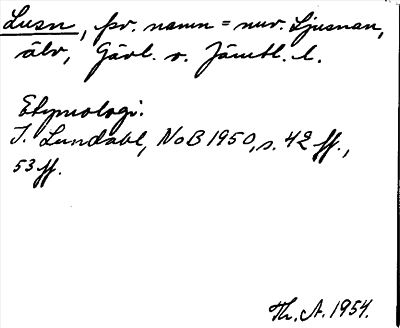 Lusn, fsv. namn = nuv. Ljusnan,
älv, Gävl. o. Jämtl. l.
Etymologi:
I. Lundahl, NoB 1950, s. 42 ff.,
53 ff.
Th. A. 1954.